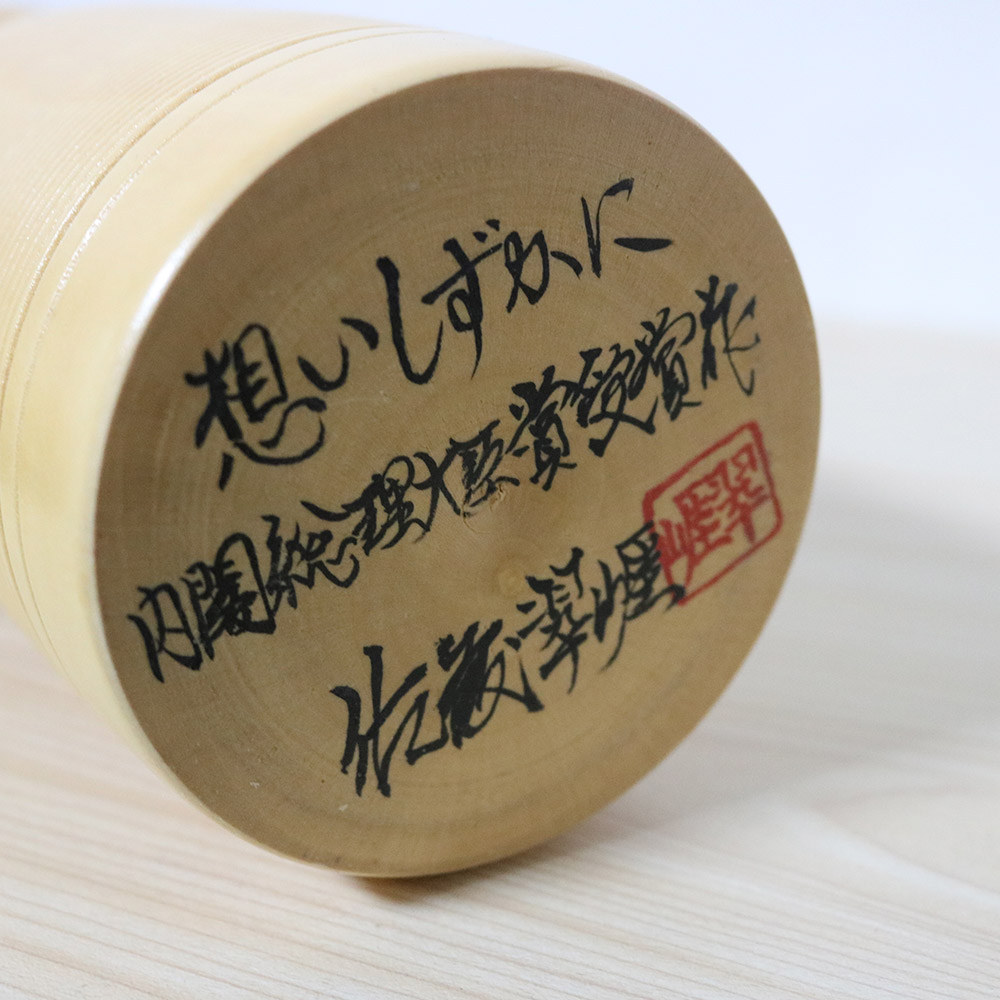 想いしずかに
内閣総理大臣賞受賞作
佐藤翠崖
翠崖